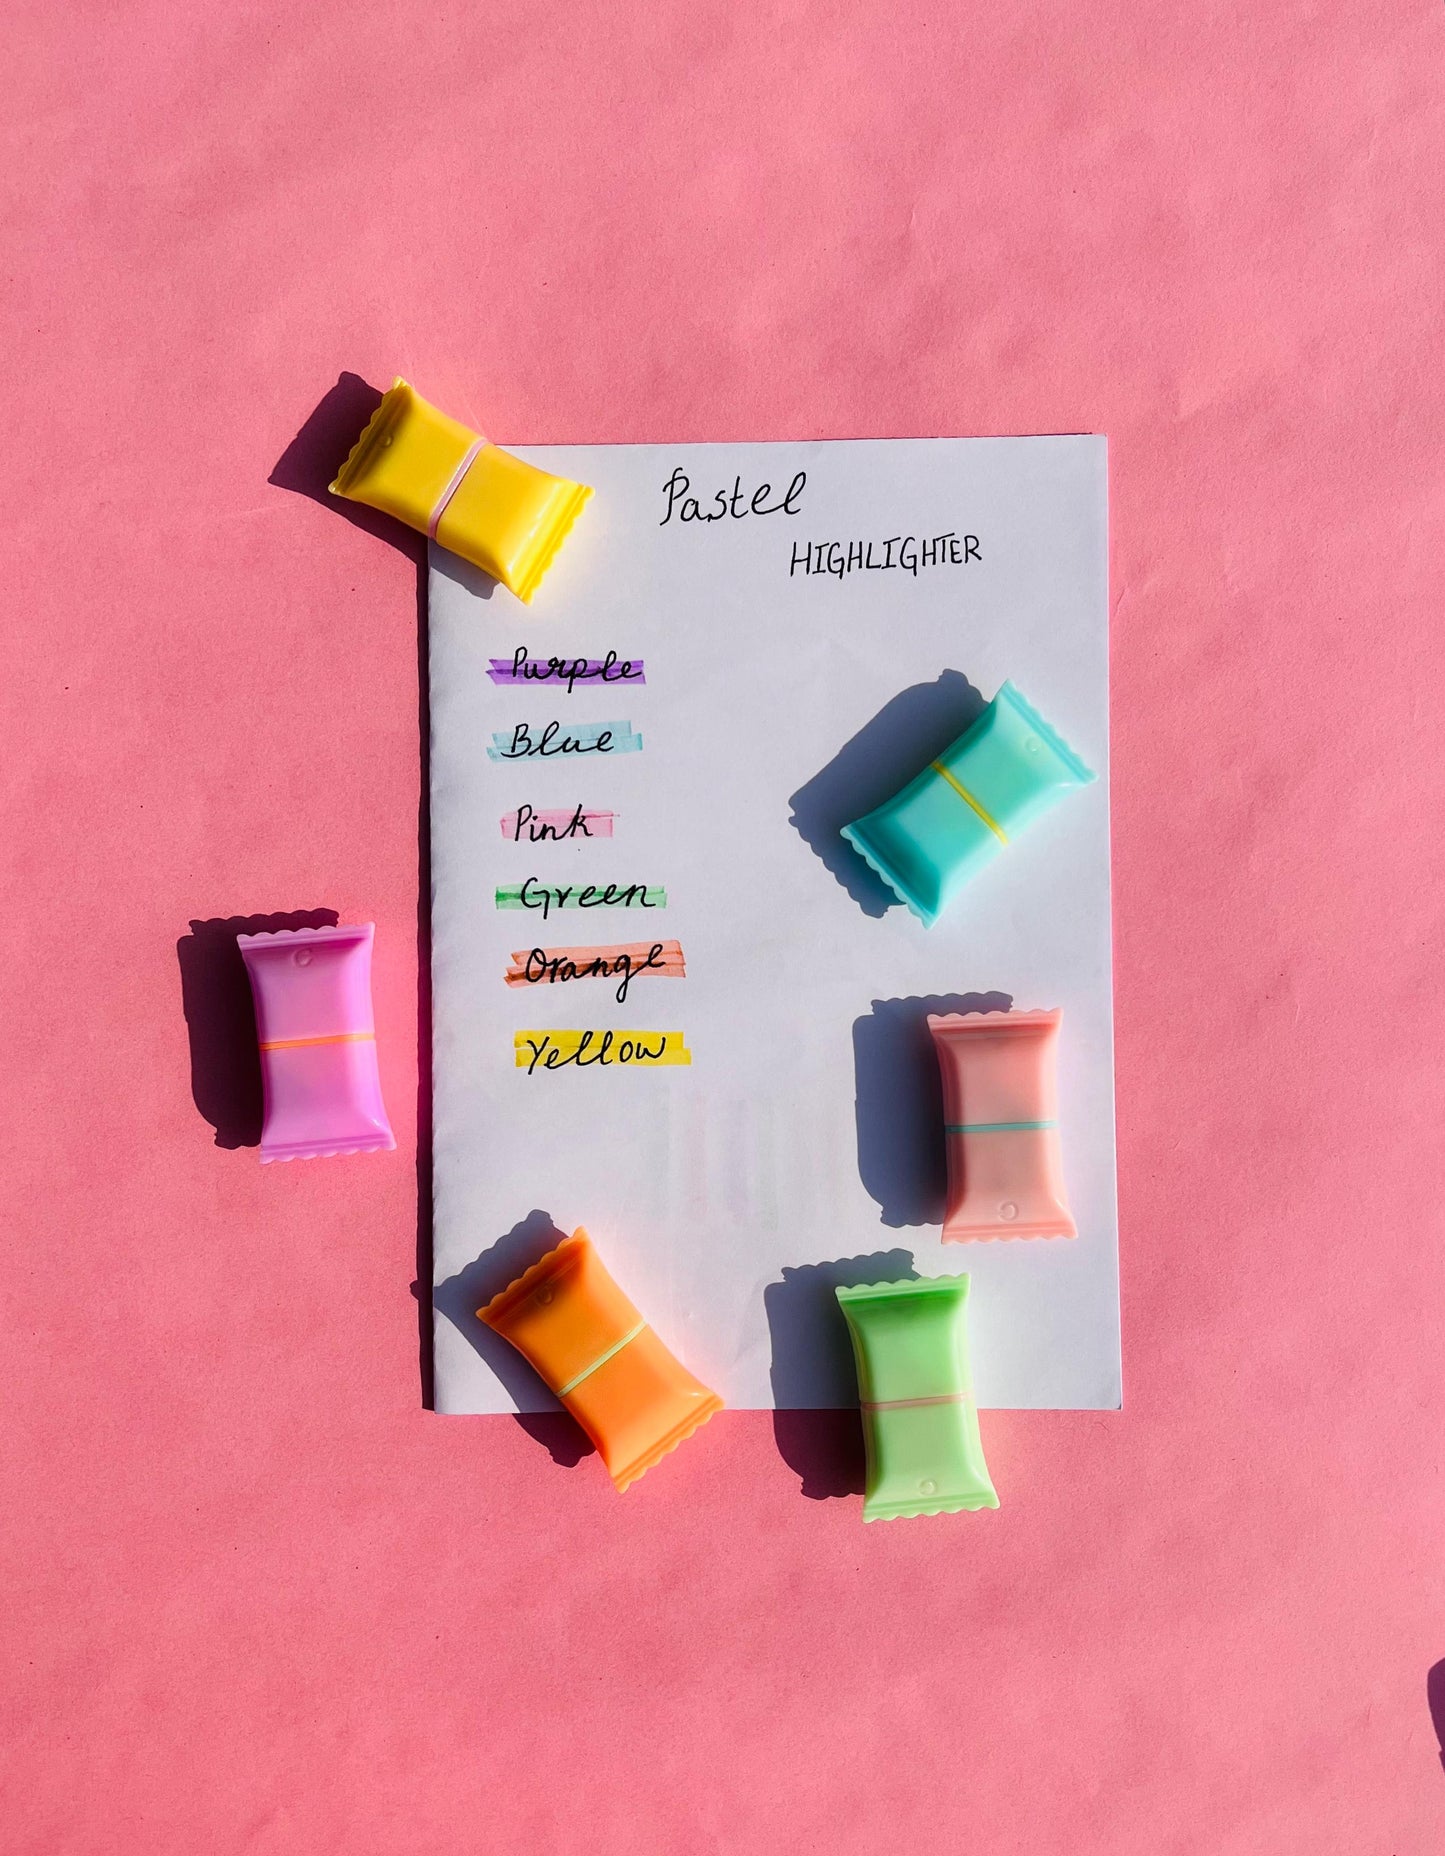 Pastel
HIGHLIGHTER
Purple
Blue
Pink
Green
Orange
Yellow